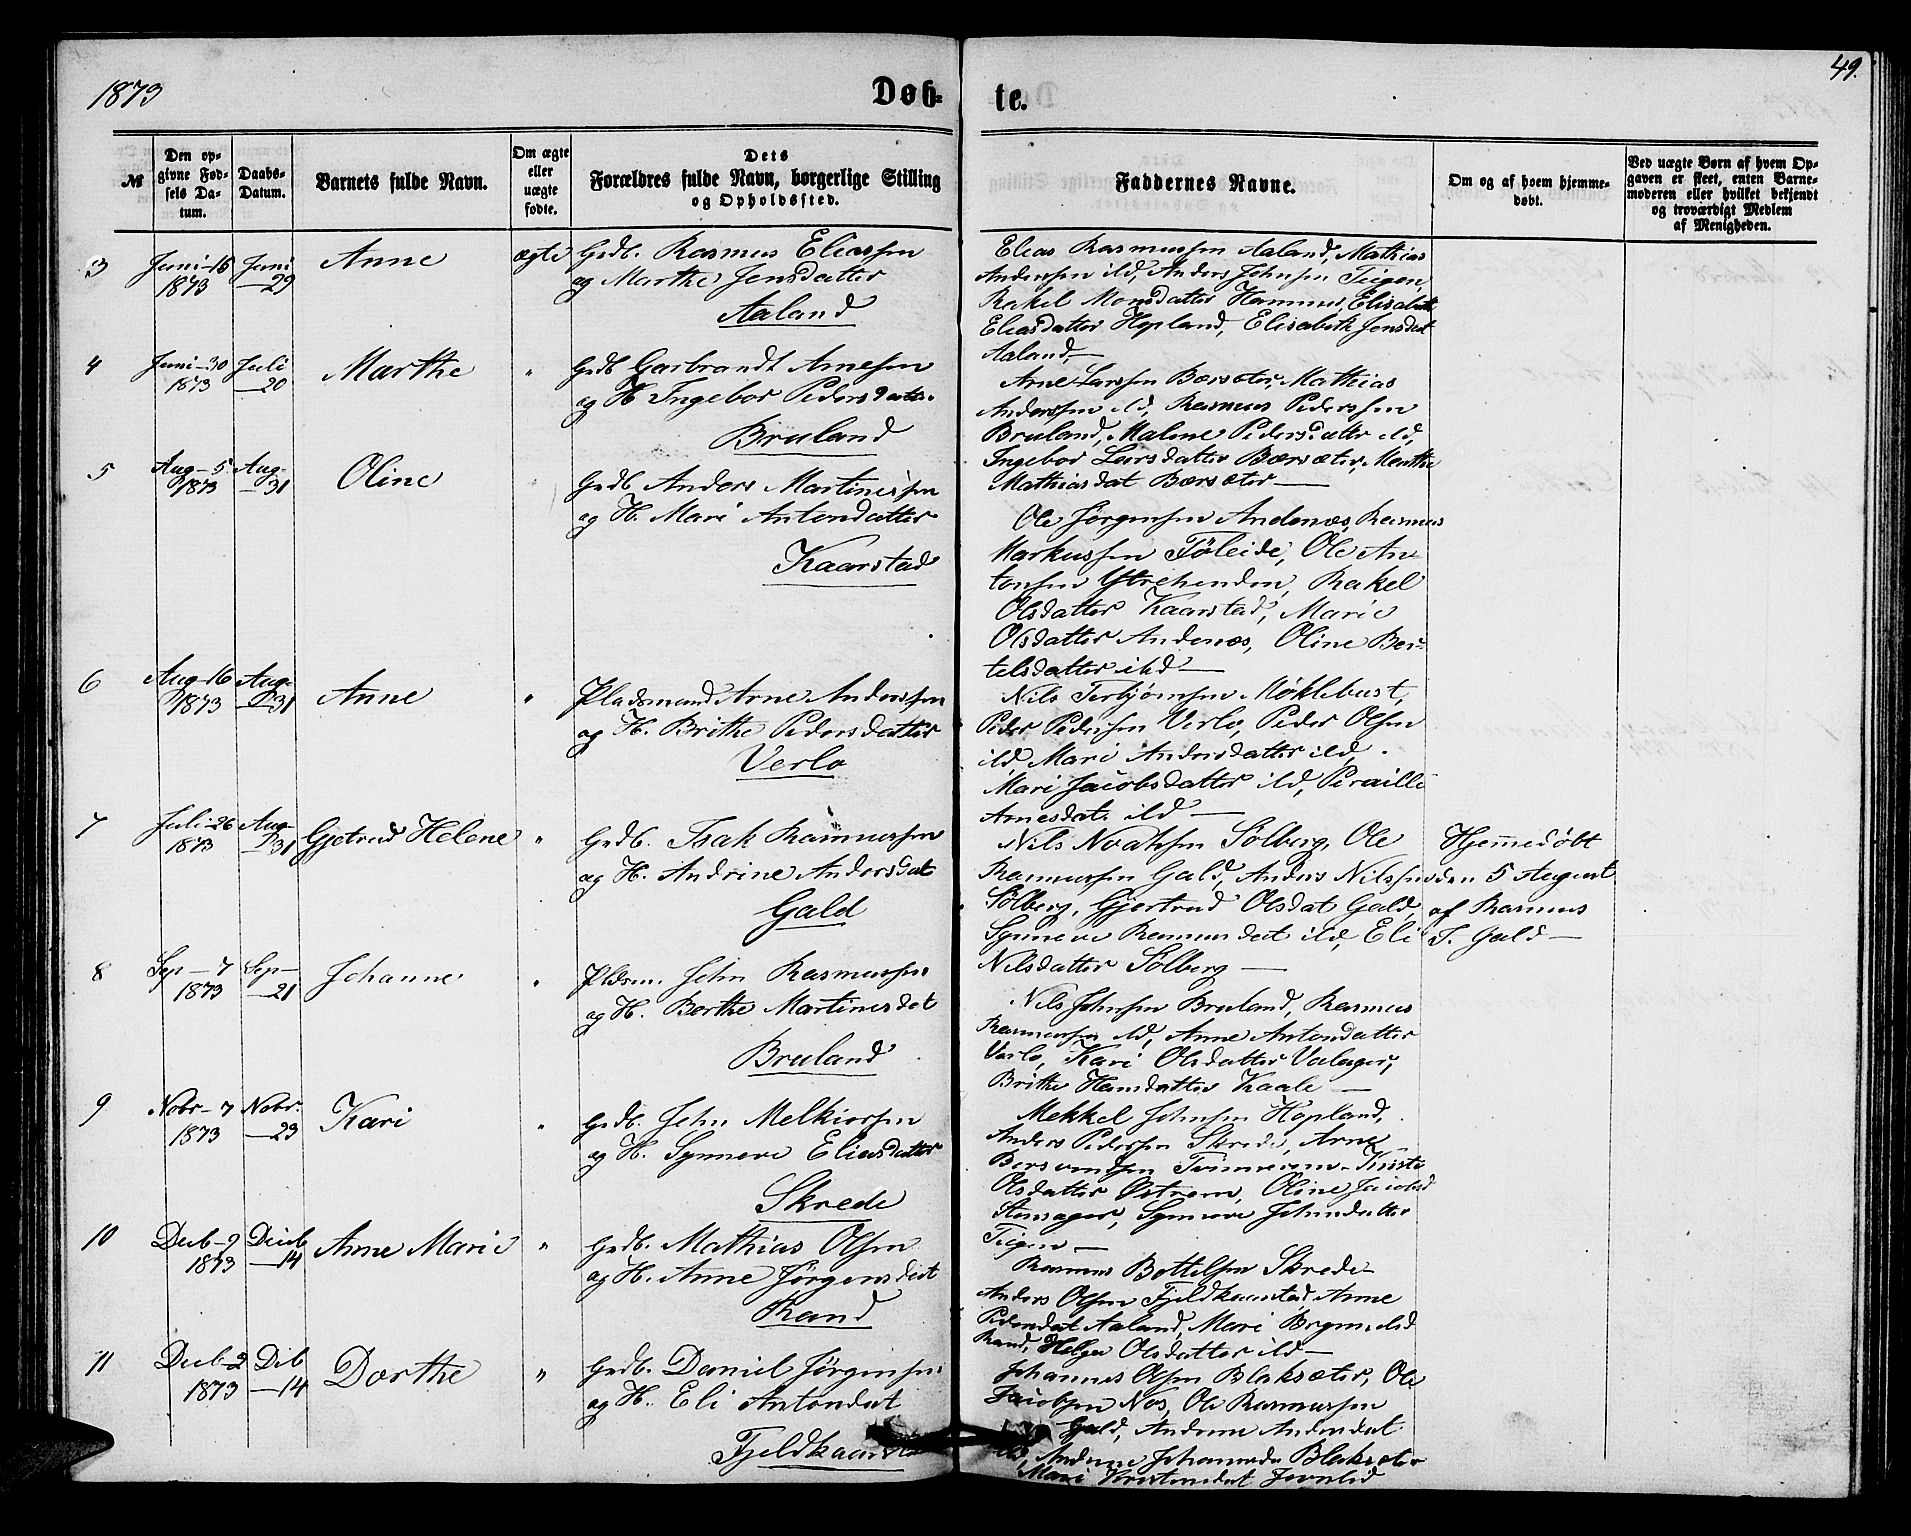 1873
Døb=
te.
49.
№
Den op=
givne Fød=
sels Da=
tum.
Daabs=
Datum.
Barnets fulde Navn.
Om ægte
eller
uægte
fødte.
Dets
Forældres fulde Navn, borgerlige Stilling
og Opholdssted.
Faddernes Navne.
Om og af hvem hjemme=
døbt.
Ved uægte Børn af hvem Op=
gaven er skeet, enten Barne=
moderen eller hvilket bekjendt
og troværdigt Medlem
af Menigheden.
3
Juni-16
1873
Juni
—29
Anne
ægte
Grdb. Rasmus Eliassen
og Marthe Jensdatter
Aaland
Elias Rasmussen Aaland, Mathias
Anderssen ild, Anders Johnsen Teigen,
Rakel Monsdatter Hammer, Elisabeth
Eliasdatter Hopland, Elisabeth Jensdat
Aaland,—
4
Juni-30
1873
Juli
—20
Marthe
"
Grdb Garbrandt Arnesen
og H Ingebor Pedersdatter
Bruland
Arne Larssen Bærsæter, Mathias
Anderssen ild, Rasmus Pederssen
Bruland, Malene Pedersdatter ild,
Ingebor Larsdatter Bærsæter, Marthe
Mathiasdat Bærsæter—
5
Aug-5
1873
Aug-
—31
Oline
Grdb Anders Martinessen
og H. Mari Antondatter
Kaarstad
Ole Jørgensen Andenæs, Rasmus
Markussen Føleide, Ole An
tonsen Ytrehenden, Rakel
Olsdatter Kaarstad, Marie
Olsdatter Andenæs, Oline Ber-
telsdatter ild—
6
Aug-16
1873
Aug-
—31
Anne
"
Pladsmand Arne Anderssen
og H. Brithe Pedersdatter
Verlo
Nils Terbjørnsen Møklebust,
Peder Pedersen Verlo, Peder Olsen
ild Mari Andersdatter ild.
Mari Jacobsdatter ild, Peraille
Arnesdat. ild—
7
Juli-26
1873
Aug-
—31
Gjetrud Helene
"
Grdb. Isak Rasmussen
og H. Andrine Andersdat
Gald
Nils Noahsen Sølberg, Ole
Rasmussen Gald, Anders Nilssen
Sølberg, Gjertrud Olsdat Gald,
Synneve Rasmusdat ild, Eli
Nilsdatter Sølberg—
Hjemmedøbt
den 5 August
af Rasmus
I. Gald—
8
Sep-7
1873
Sep-
—21
Johanne
"
Pldsm. John Rasmussen
og H. Berthe Martinesdat
Bruland
Nils Johnsen Bruland, Rasmus
Rasmussen ild, Anne Antondatter
Verlo, Kari Olsdatter Valager,
Brithe Hansdatter Kaale—
9
Nobr-7
1873
Nobr.
—23
Kari
"
Grdb. John Melkiorsen
og H. Synneve Eliasdatter
Skrede
Mekkel Johnsen Hopland,
Anders Pedersen Skrede, Arne
Olsdatter Østrem, Oline Jacobsd
Synneve Johnsdatter
Teigen—
10
Decb-9
1873
Decb
—14
Anne Marie
"
Grdb. Mathias Olsen
og H. Anne Jørgensdat
Rand
Rasmus Bottelsen Skrede
Anders Olsen Fjeldkaarstad, Anne
Pedersdat Aaland, Mari Brynnelsd
Rand, Helga Olsdatter ild—
11
Decb-2
1873
Dcb
—14
Dorthe
"
Grdb. Daniel Jørgensen
og H. Eli Antondat
Fjeldkaarstad
Johannes Olsen Blaksæter, Ole
Jacobsen Nos, Ole Rasmussen
Gald, Anderine Andersdat
ild, Anderine Johannesdat Blaksæter
Mari